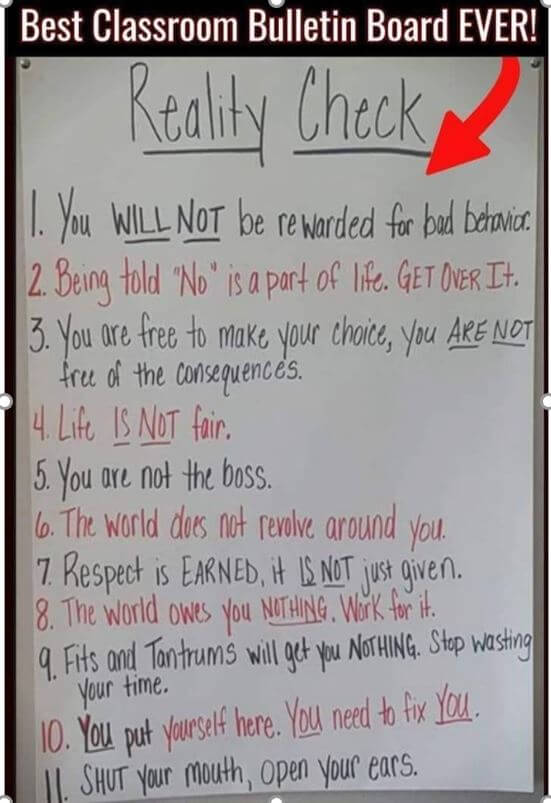 Best Classroom Bulletin Board EVER!
Reality Check
1. You WILL NOT be rewarded for bad behavior.
2. Being told "No" is a part of life. GET OVER It.
3. You are free to make your choice, you ARE NOT
free of the consequences.
4. Life IS NOT fair.
5. You are not the boss.
6. The world does not revolve around you.
7. Respect is EARNED, it IS NOT just given.
8. The world owes you NOTHING. Work for it.
9. Fits and Tantrums will get you NOTHING. Stop wasting
your time.
10. You put yourself here. You need to fix You.
11. SHUT your mouth, open your ears.